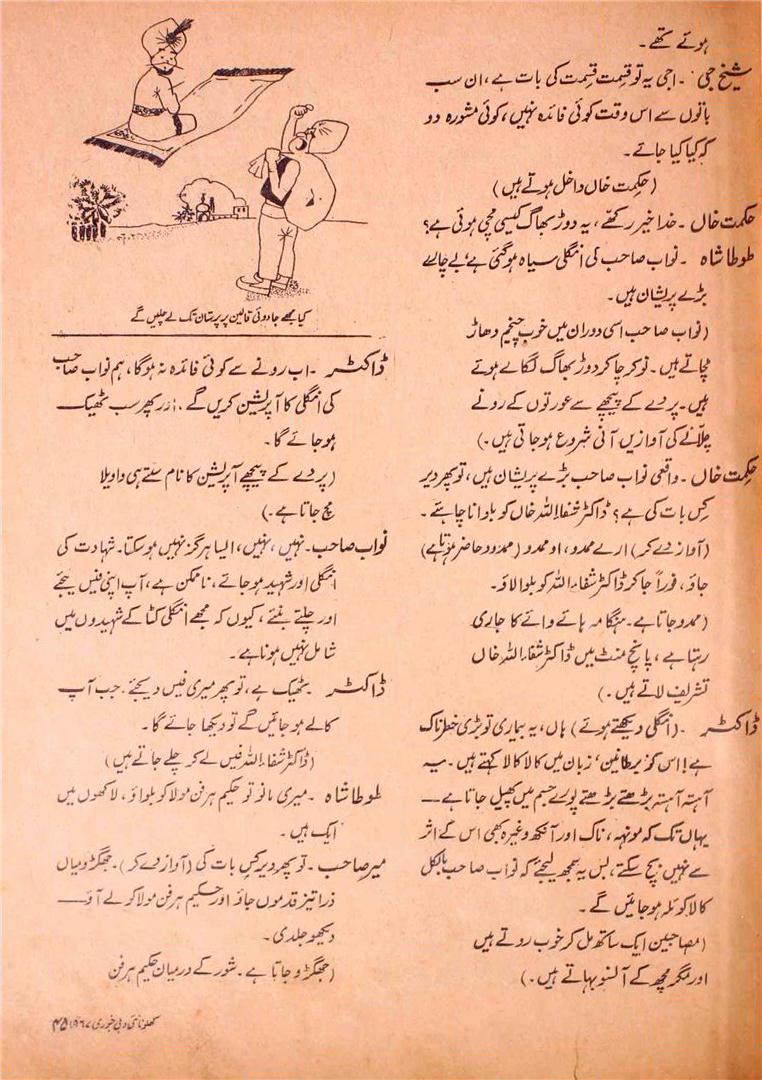 ہوئے تھے۔
شیخ جی ۔ اجی یہ تو قسمت قسمت کی بات ہے، ان سب
باتوں سے اس وقت کوئی فائدہ نہیں، کوئی مشورہ دو
کہ کیا کیا جائے۔
(حکمت خاں داخل ہوتے ہیں)
حکمت خاں ۔ خدا خیر رکھے، یہ دوڑ بھاگ کیسی مچی ہوئی ہے؟
طوطا شاہ ۔ نواب صاحب کی انگلی سیاہ ہو گئی ہے، بے چارے
بڑے پریشان ہیں۔
(نواب صاحب اسی دوران میں خوب چیخم دھاڑ
مچاتے ہیں۔ نوکر چاکر دوڑ بھاگ لگائے ہوئے
ہیں۔ پردے کے پیچھے سے عورتوں کے رونے
چلّانے کی آوازیں آنی شروع ہو جاتی ہیں۔)
حکمت خاں ۔ واقعی نواب صاحب بڑے پریشان ہیں، تو پھر دیر
کس بات کی ہے؟ ڈاکٹر شفاء اللہ خاں کو بلوانا چاہئے۔
(آواز دے کر) ارے ممدو، او ممدو (ممدو حاضر ہوتا ہے)
جاؤ، فوراً جا کر ڈاکٹر شفاء اللہ کو بلوا لاؤ۔
(ممدو جاتا ہے۔ ہنگامہ ہائے وائے کا جاری
رہتا ہے، پانچ منٹ میں ڈاکٹر شفاء اللہ خاں
تشریف لاتے ہیں۔)
ڈاکٹر ۔ (انگلی دیکھتے ہوئے) ہاں، یہ بیماری تو بڑی خطرناک
ہے! اس کو زبان میں کالا کالا کہتے ہیں۔ یہ
آہستہ آہستہ بڑھتے بڑھتے پورے جسم میں پھیل جاتا ہے۔
یہاں تک کہ مونہہ، ناک اور آنکھ وغیرہ بھی اس کے اثر
سے نہیں بچ سکتے، بس یہ سمجھ لیجئے کہ نواب صاحب بالکل
کالا کوئلہ ہو جائیں گے۔
(مصاحبین ایک ساتھ مل کر خوب روتے ہیں
اور مگرمچھ کے آنسو بہاتے ہیں۔)
کیا مجھے جادوئی قالین پر پرستان تک لے چلیں گے
ڈاکٹر ۔ اب رونے سے کوئی فائدہ نہ ہوگا، ہم نواب صاحب
کی انگلی کا آپریشن کریں گے۔ اور پھر سب ٹھیک
ہو جائے گا۔
(پردے کے پیچھے آپریشن کا نام سنتے ہی واویلا
مچ جاتا ہے۔)
نواب صاحب ۔ نہیں، نہیں، ایسا ہرگز نہیں ہو سکتا۔ شہادت کی
انگلی اور شہید ہو جائے، ناممکن ہے، آپ اپنی فیس لیجئے
اور چلتے بنئے، کیوں کہ مجھے انگلی کٹا کے شہیدوں میں
شامل نہیں ہونا ہے۔
ڈاکٹر ۔ ٹھیک ہے، تو پھر میری فیس دیجئے۔ جب آپ
کالے ہو جائیں گے تو دیکھا جائے گا۔
(ڈاکٹر شفاء اللہ فیس لے کر چلے جاتے ہیں)
طوطا شاہ ۔ میری مانو تو حکیم ہرفن مولا کو بلواؤ، لاکھوں میں
ایک ہیں۔
میر صاحب ۔ تو پھر دیر کس بات کی (آواز دے کر)۔ جھگڑو میاں
ذرا تیز قدموں جاؤ اور حکیم ہرفن مولا کو لے آؤ۔
دیکھو جلدی۔
(جھگڑو جاتا ہے۔ شور کے درمیان حکیم ہرفن
کھلونا نئی دہلی جنوری ۱۹۶۷ ۴۵